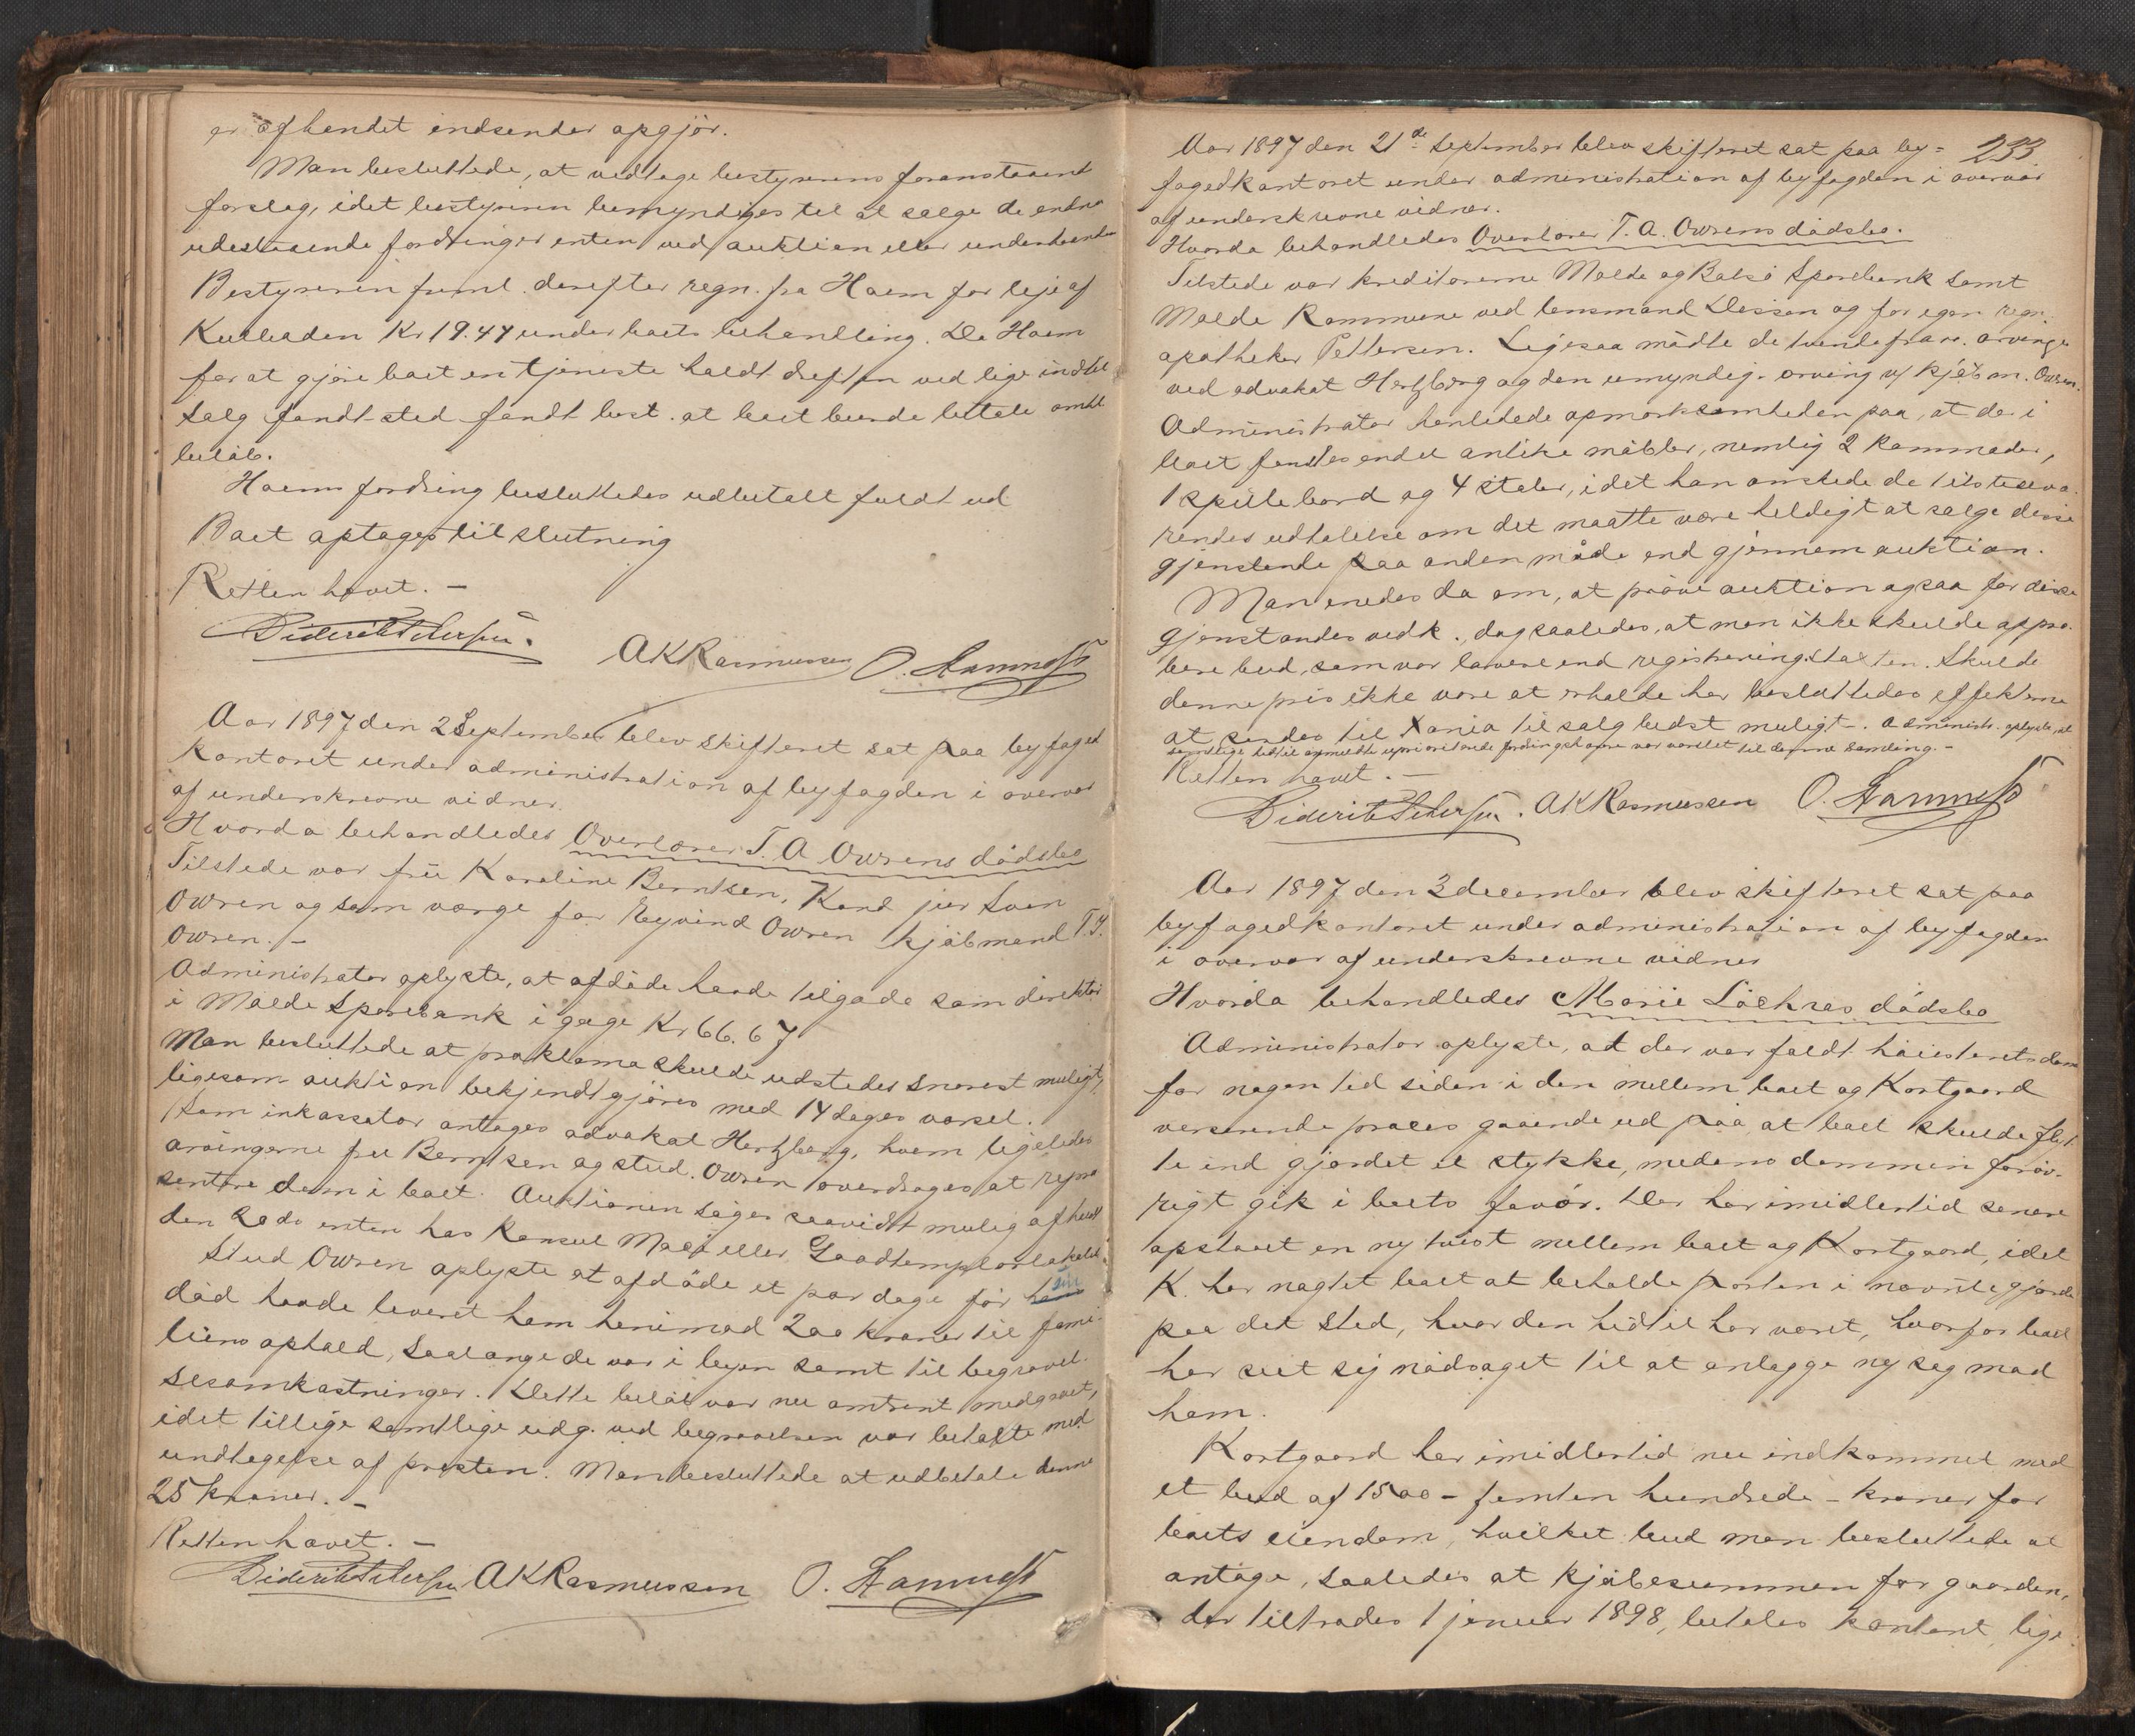 er afhendet indsender opgjör.
Man besluttede, at vedtage bestyrerens foranstaaend
forslag, idet bestyreren bemyndiges til at sælge de endnu
udestaaende fordringer enten ved auktion eller underhaanden
Bestyreren freml. derefter regn. fra Haem for leje af
Kulboden Kr 19.47 under boets behandling. Da Haem
for at gjöre boet en tjeneste holdt driften ved lige indtil
salg fandt sted fandt best. at boet burde betale omhl.
belöb.
Haems fordring besluttedes udbetalt fuldt ud
Boet optages til slutning
Retten hævet. –
Diderik Petersen. AKRasmussen O. Hamnes
Aar 1897 den 2 September blev skifteret sat paa byfoged
kontoret under administration af byfogden i overvær
af underskrevne vidner.
Hvorda behandledes Overlærer T. A Owrens dödsbo
Tilstede var frü Karoline Berntsen, Kand jur Sven
Owren og som værge for Eyvind Owren kjöbmand T. J.
Owren. –
Administrator oplyste, at afdöde havde tilgode som direktör
i Molde Sparebank i gage Kr 66. 67
Man besluttede at proklama skulde udstedes snarest muligt,
ligesom auktion bekjendtgjöres med 14 dages varsel.
Som inkassator antages advokat Hertzberg, hvem ligeledes
arvingerne fru Berntsen og stud. Owren overdrages at repræ
sentere dem i boet. Auktionen söges saavidt mulig afholdt
den 20de enten hos Konsul Møoe eller Goodtemplarlokalet.
Stud Owren oplyste at afdöde et par dage för sin
död havde leveret ham henimod 200 kroner til fami-
liens ophold, saalænge de var i byen samt til begravel-
sesomkostninger. Dette belöb var nu omtrent medgaaet,
idet tillige samtlige udg. ved begravelsen var betalte med
undtagelse af presten. Man besluttede at udbetale denne
25 kroner. –
Retten hævet. –
Diderik Petersen AKRasmussen O. Hamnes
233
Aar 1897 den 21de September blev skifteret sat paa by=
fogedkontoret under administration af byfogden i overvær
af underskrevne vidner.
Hvorda behandledes Overlærer T. A. Owrens dödsbo.
Tilstede var kreditorerne Molde og Bolsö Sparebank samt
Molde Kommune ved lensmand Dessen og for egen regn.
apotheker Pettersen. Ligesaa mödte de tvende fravr. arvinge
ved advokat Hertzberg og den umyndig. arving v/ kjöbm. Owren.
Administrator henledede opmærksomheden paa, at der i
boet fandtes endel antike möbler, nemlig 2 kommoder,
1 spillebord og 4 stoler, idet han önskede de tilsteseva-
rendes udtalelse om det maatte være heldigt at sælge disse
gjenstande paa anden måde end gjennem auktion.
Man enedes da om, at pröve auktion ogsaa for disse
gjenstandes vedk., dog saaledes, at man ikke skulde appro-
bere bud, som var lavere end registreringstaxten. Skulde
denne pris ikke være at erholde her besluttedes effekterne
at sendes til Xania til salg bedst muligt. – Administr. oplyste, at
samtlige hidtil anmeldte uprioriterede fordringshavere var varslet til denne samling. –
Retten hævet. –
Diderik Petersen. AKRasmussen O. Hamnes
Aar 1897 den 3 december blev skifteret sat paa
byfogedkontoret under administration af byfogden
i overvær af underskrevne vidner
Hvorda behandledes Marie Löchres dödsbo
Administrator oplyste, at der var faldt höiesteretsdom
for nogen tid siden i den mellem boet og Kortgaard
verserende proces gaaende ud paa at boet skulde flyt-
te ind gjærdet et stykke, medens dommen forøv-
rigt gik i boets favör. Der har imidlertid senere
opstaaet en ny tvist mellem boet og Kortgaard, idet
K. har nægtet boet at beholde porten i nævnte gjærde
paa det sted, hvor den hidtil har været, hvorfor boet
har seet sig nödsaget til at anlægge ny sag mod
ham.
Kortgaard har imidlertid nu indkommet med
et bud af 1500 – femten hundrede – kroner for
boets eiendom, hvilket bud man besluttede at
antage, saaledes at kjöbesummen for gaarden,
der tiltrædes 1 januar 1898, betales kontant, lige-